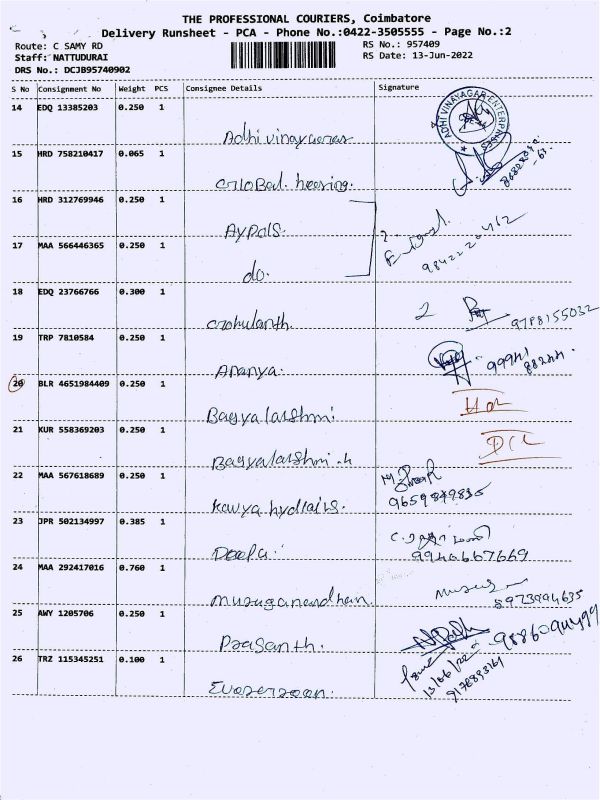 THE PROFESSIONAL COURIERS, Coimbatore
Delivery Runsheet - PCA - Phone No.:0422-3505555 - Page No.:2
Route: C SAMY RD RS No.: 957409
Staff: NATTUDURAI RS Date: 13-Jun-2022
DRS No.: DCJB95740902
S No Consignment No Weight PCS Consignee Details Signature
14 EDQ 13385203 0.250 1
ADHI VINAYAGAR ENTERPRISES
15 HRD 758210417 0.065 1
Global hearing.
16 HRD 312769946 0.250 1
Aypols.
9842220462
17 MAA 566446365 0.250 1
do.
18 EDQ 23766766 0.300 1
Gokulanth. 2 9788155032
19 TRP 7810584 0.250 1
Ananya. 99941 88244
20 BLR 4651984409 0.250 1
Bagyalakshmi
21 KUR 558369203 0.250 1
DCL
Bagyalakshmi.
22 MAA 567618689 0.250 1
9659849835
Kavya
23 JPR 502134997 0.385 1
Deepa. 9944667669
24 MAA 292417016 0.760 1
Muruganandhan. 8973994635
25 AWY 1205706 0.250 1
Prasanth. 9886094499
26 TRZ 115345251 0.100 1
13/06/22